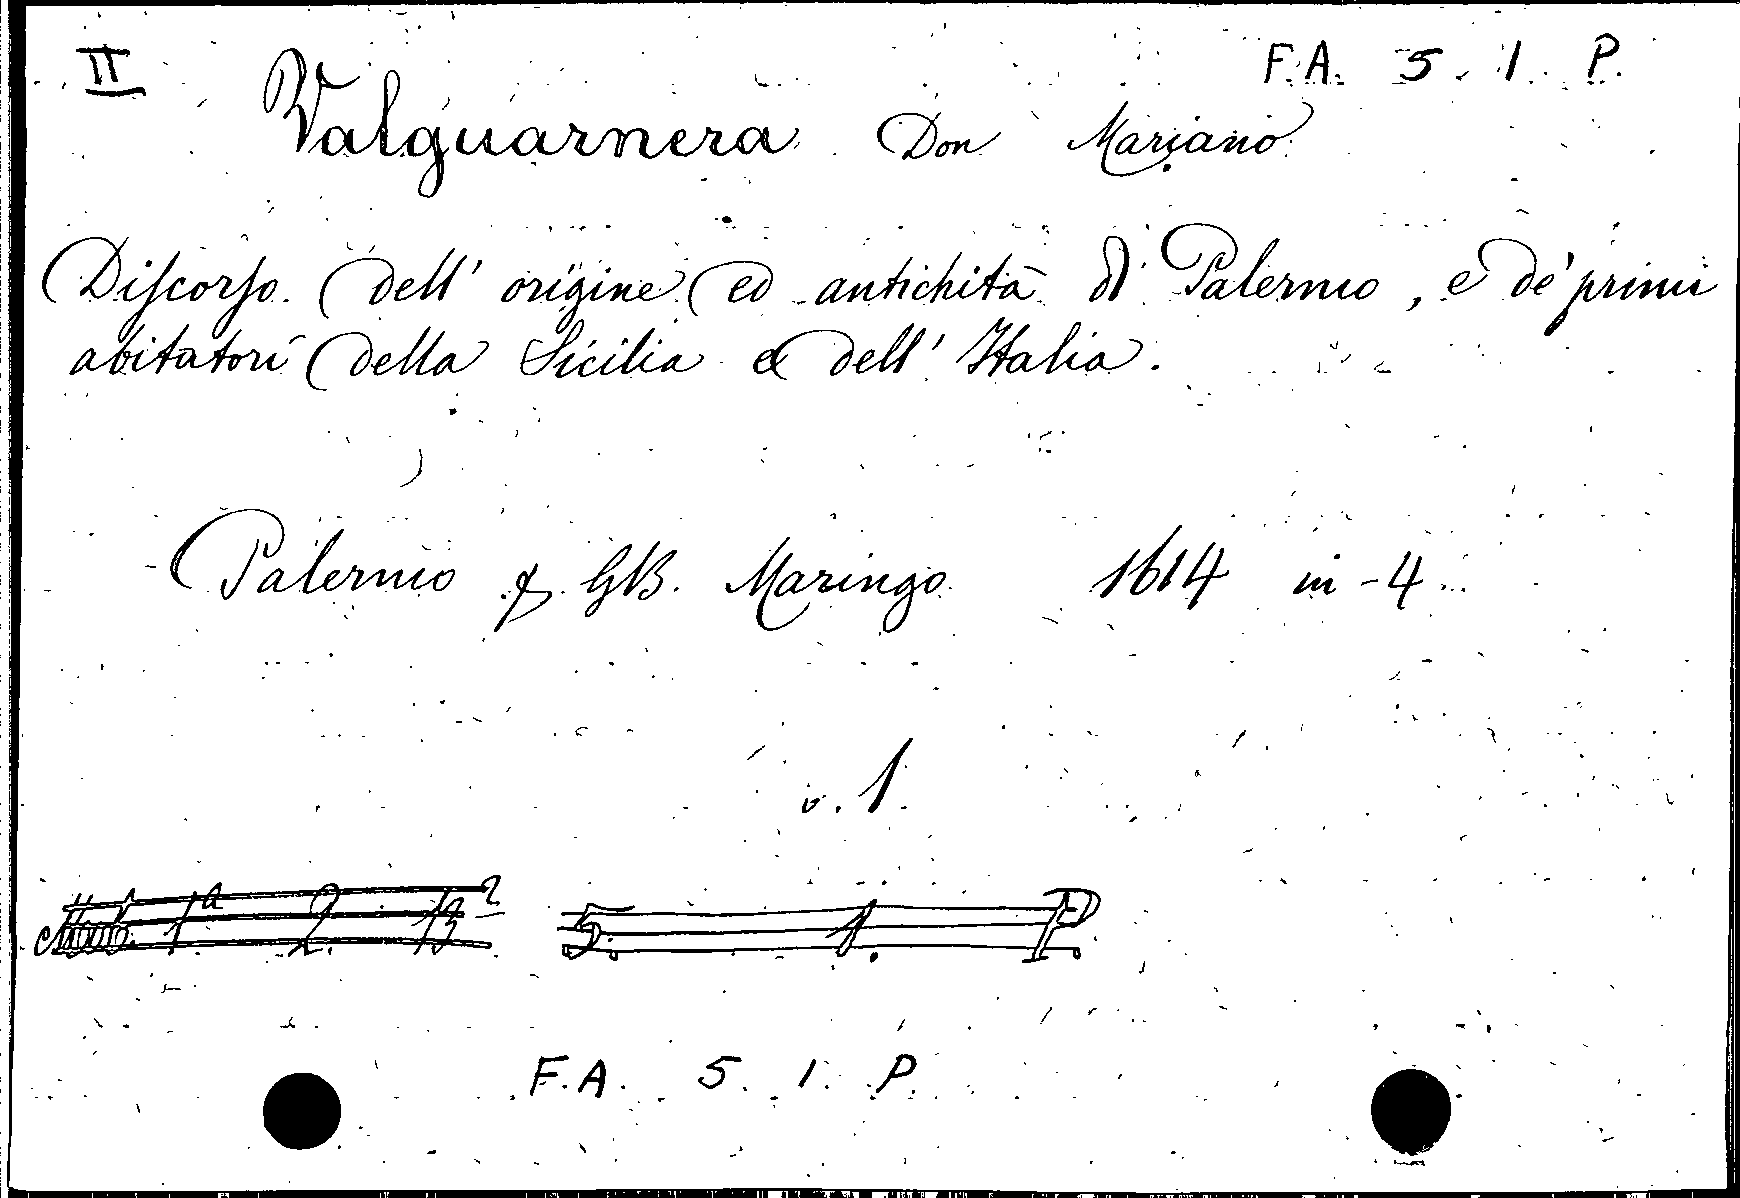 II F.A. 5. 1. P.
Valguarnera Don Mariano
Discorso dell' origine ed antichità di Palermo, e de' primi
abitatori della Sicilia e dell' Italia.
Palermo p. GB. Maringo 1614 in-4.
v. 1.
1ª 2. 13² 5. 1. P.
F.A. 5. 1. P.